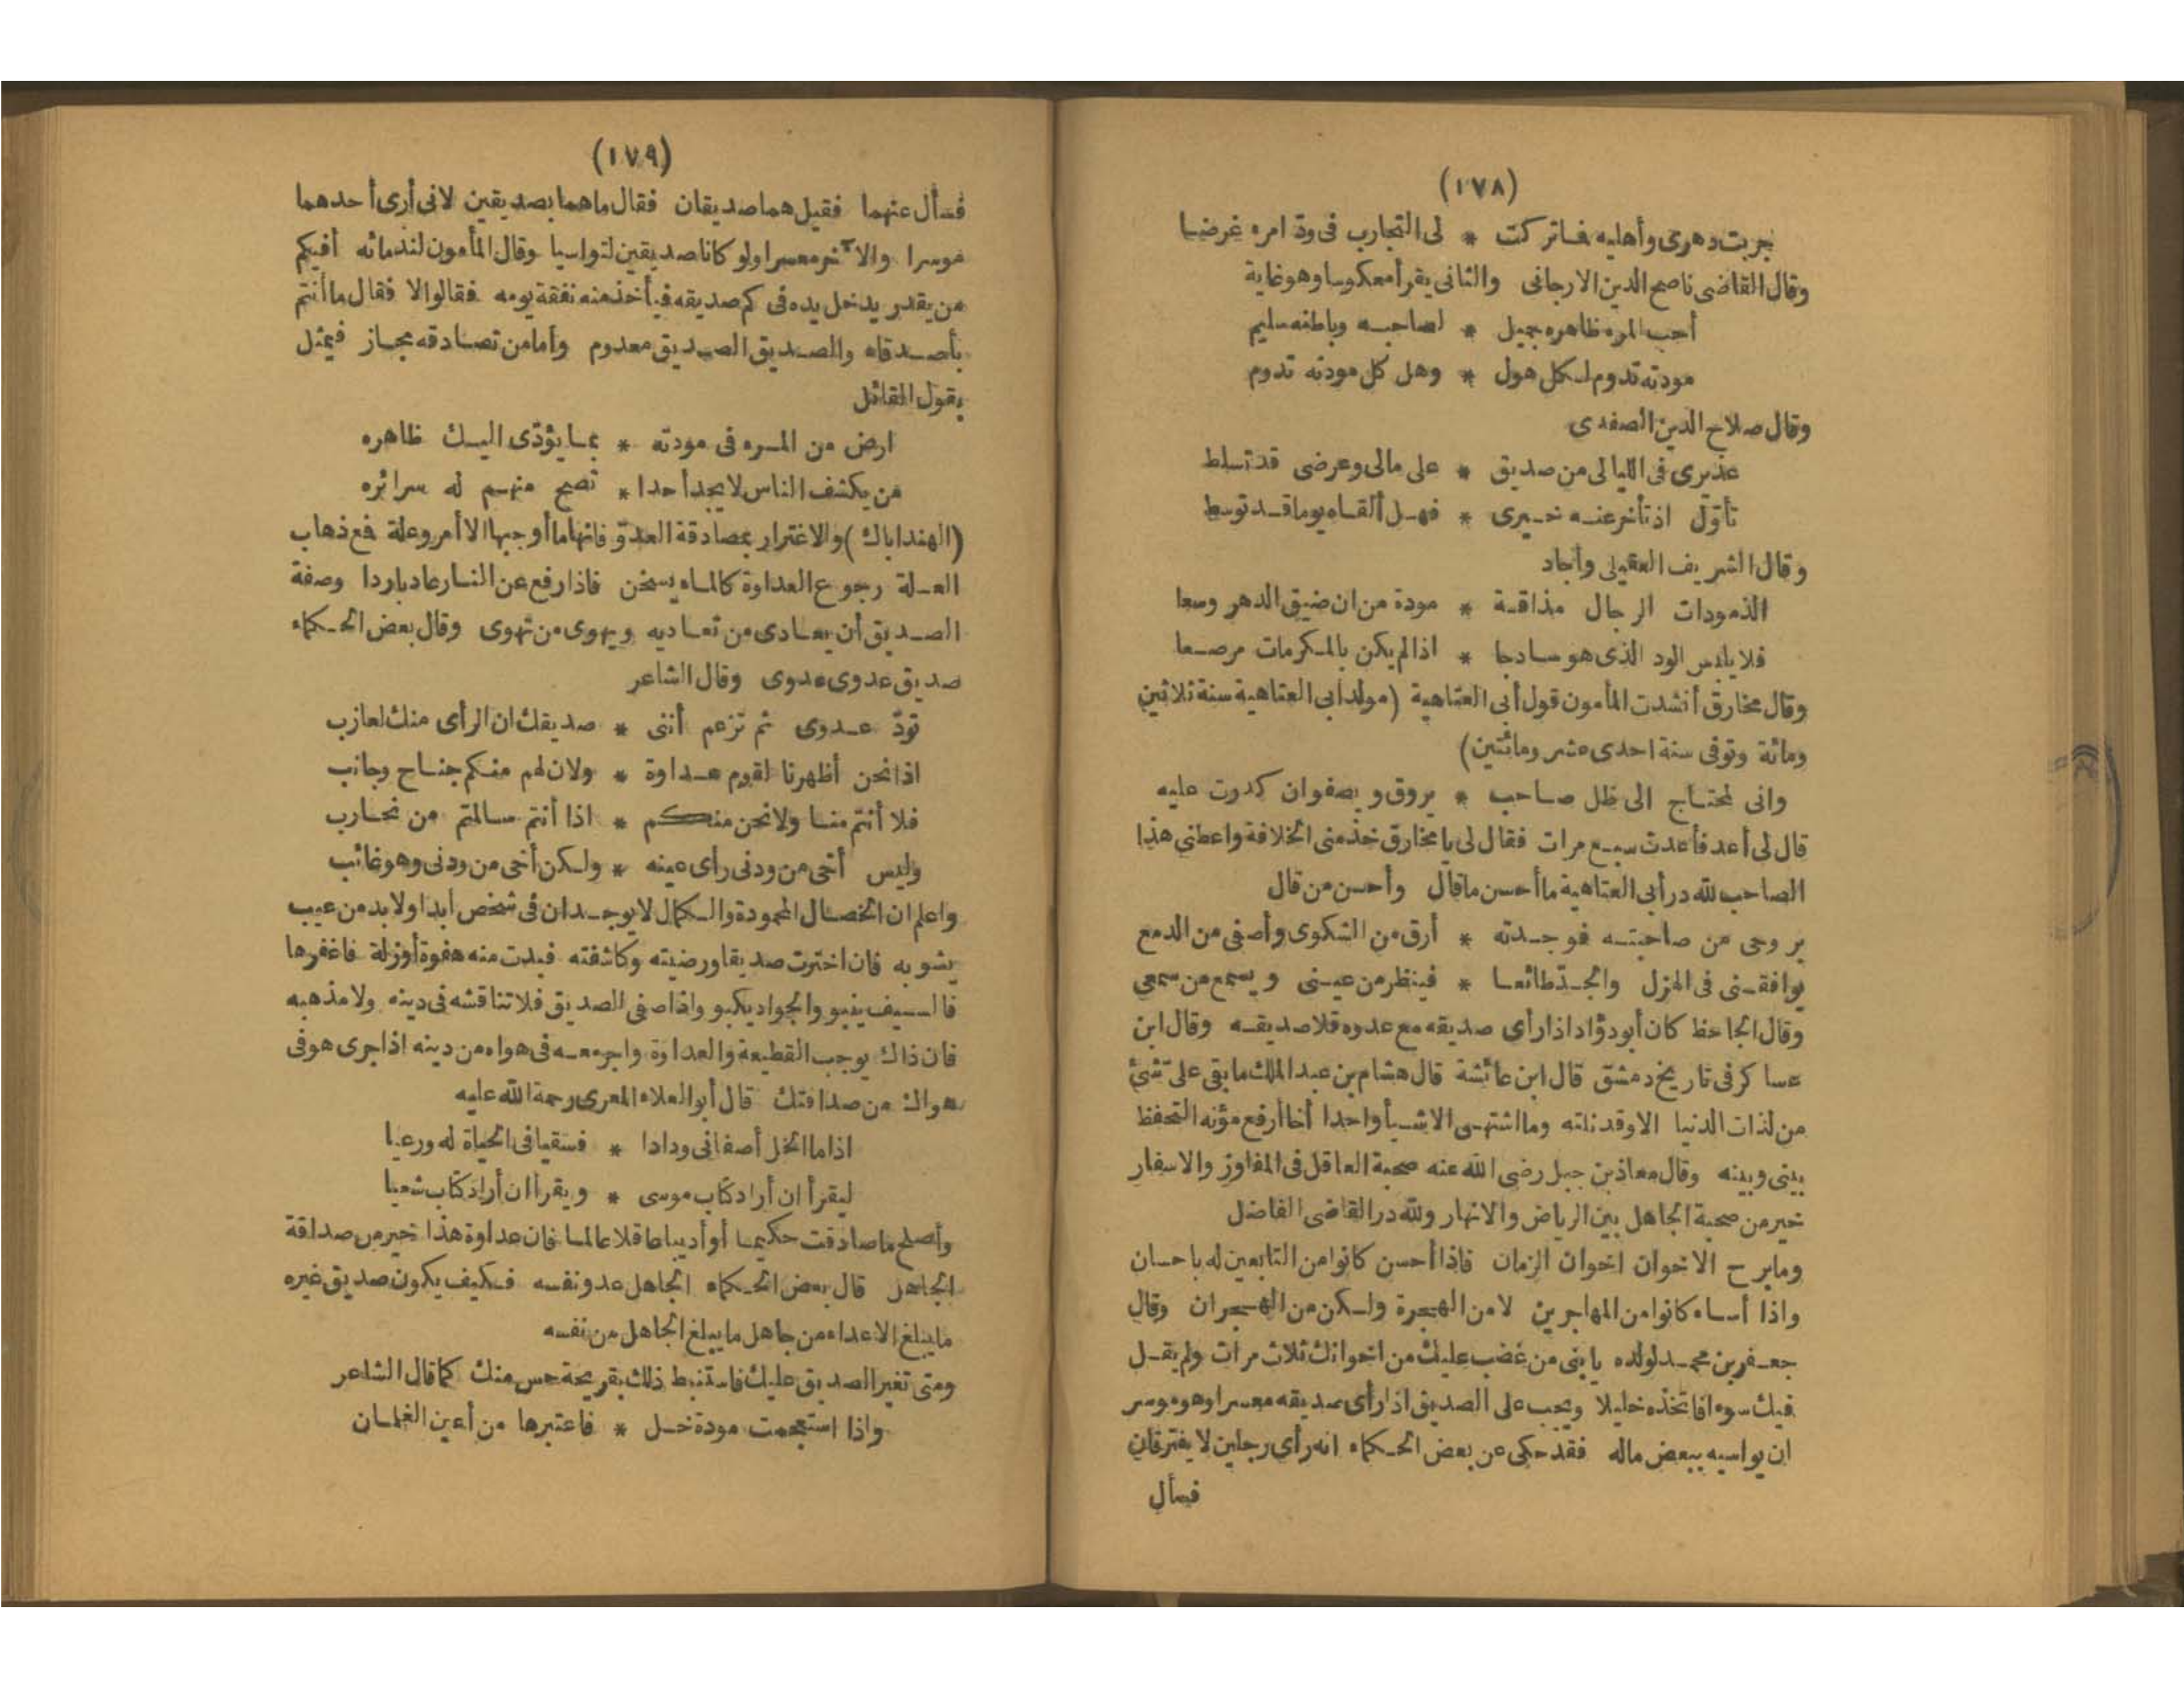 (١٧٨)
جربت دهرى وأهليه فما تركت * لى التجارب فى ودّ امره غرضيا
وقال القاضى ناصح الدين الارجانى والثانى يقرأ معكوسا وهو غاية
أحب المره ظاهره جميل * لصاحبه وباطنه سليم
مودته تدوم لكل هول * وهل كل مودته تدوم
وقال صلاح الدين الصفدى
عذيرى فى الليالى من صديق * على مالى وعرضى قد تسلط
تأوّل اذ تأخر عنه خيرى * فهل ألقاه يوما قد توسط
وقال الشريف العقيلى وأجاد
الذ مودات الرجال مذاقة * مودة من ان ضيق الدهر وسعا
فلا يلبس الود الذى هو ساذجا * اذا لم يكن بالمكرمات مرصعا
وقال مخارق أنشدت المأمون قول أبى العتاهية (مولد أبى العتاهية سنة ثلاثين
ومائة وتوفى سنة احدى عشر ومائتين)
وانى لمحتاج الى ظل صاحب * يروق ويصفو ان كدرت عليه
قال لى أعد فأعدت سبع مرات فقال لى يا مخارق خذ منى الخلافة واعطنى هذا
الصاحب لله در أبى العتاهية ما أحسن ما قال وأحسن من قال
بروحى من صاحبته فوجدته * أرق من الشكوى وأصفى من الدمع
يوافقنى فى الهزل والجدّ طائعا * فينظر من عينى ويسمع من سمعى
وقال الجاحظ كان أبو دؤاد اذا رأى صديقه مع عدوه قلا صديقه وقال ابن
عساكر فى تاريخ دمشق قال ابن عائشة قال هشام بن عبد الملك ما بقى علىّ شئ
من لذات الدنيا الا وقد نلته وما اشتهى الا شيأ واحدا أخا أرفع مؤنه التحفظ
بينى وبينه وقال معاذ بن جبل رضى الله عنه صحبة العاقل فى المفاوز والاسفار
خير من صحبة الجاهل بين الرياض والانهار ولله در القاضى الفاضل
وما برح الاخوان اخوان الزمان فاذا أحسن كانوا من التابعين له باحسان
واذا أساء كانوا من المهاجرين لا من الهجرة ولكن من الهجران وقال
جعفر بن محمد لولده يا بنى من غضب عليك من اخوانك ثلاث مرات ولم يقل
فيك سوءا فاتخذه خليلا ويجب على الصديق اذا رأى صديقه معسرا وهو موسر
ان يواسيه ببعض ماله فقد حكى عن بعض الحكماء انه رأى رجلين لا يفترقان
فسأل
(١٧٩)
فسأل عنهما فقيل هما صديقان فقال ما هما بصديقين لانى أرى أحدهما
موسرا والآخر معسرا ولو كانا صديقين لتواسيا وقال المأمون لندمائه أفيكم
من يقدر يدخل يده فى كم صديقه فيأخذ منه نفقة يومه فقالوا لا فقال ما أنتم
بأصدقاء والصديق الصديق معدوم وأما من تصادقه مجاز فيمثل
بقول القائل
ارض من المره فى مودته * بما يؤدّى اليك ظاهره
من يكشف الناس لا يجد أحدا * تصح منهم له سرائره
(الهندا باك) والاغترار بمصادقة العدوّ فانها ما أوجبها الا أمر وعلة فمع ذهاب
العلة رجوع العداوة كالماء يسخن فاذا رفع عن النار عاد باردا وصفة
الصديق أن يعادى من تعاديه ويهوى من تهوى وقال بعض الحكماء
صديق عدوى عدوى وقال الشاعر
تودّ عدوى ثم تزعم أننى * صديقك ان الرأى منك لعازب
اذا نحن أظهرنا لقوم عداوة * ولان لهم منكم جناح وجانب
فلا أنتم منا ولا نحن منكم * اذا أنتم سالمتم من نحارب
وليس أخى من ودنى رأى عينه * ولكن أخى من ودنى وهو غائب
واعلم ان الخصال المحمودة والكمال لا يوجدان فى شخص أبدا ولابد من عيب
يشوبه فان اخترت صديقا ورضيته وكاشفته فبدت منه هفوة أو زلة فاغفرها
فالسيف ينبو والجواد يكبو واذا صفى الصديق فلا تناقشه فى دينه ولا مذهبه
فان ذاك يوجب القطيعة والعداوة واجر معه فى هواه من دينه اذا جرى هو فى
هواك من صداقتك قال أبو العلاء المعرى رحمة الله عليه
اذا ما الخل أصفانى ودادا * فسقيا فى الحياة له ورعيا
ليقرأ ان أراد كتاب موسى * ويقرأ ان أراد كتاب شعيا
وأصلح ما صادقت حكيما أو أديبا عاقلا عالما فان عداوة هذا خير من صداقة
الجاهل قال بعض الحكماء الجاهل عدو نفسه فكيف يكون صديق غيره
ما يبلغ الاعداء من جاهل ما يبلغ الجاهل من نفسه
ومتى تغير الصديق عليك فاستنبط ذلك بقريحة حس منك كما قال الشاعر
واذا استعجمت مودة خل * فاعتبرها من أعين الغلمان